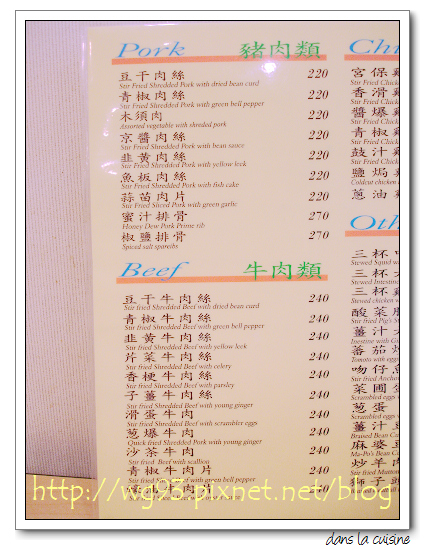 Pork 豬肉類
豆干肉絲 220
Stir Fried Shredded Pork with dried bean curd
青椒肉絲 220
Stir Fried Shredded Pork with green bell pepper
木須肉 220
Assorted vegetable with shreded pork
京醬肉絲 220
Stir Fried Shredded Pork with bean sauce
韭黃肉絲 220
Stir Fried Shredded Pork with yellow leek
魚板肉絲 220
Stir Fried Shredded Pork with fish cake
蒜苗肉片 220
Stir Fried Sliced Pork with green garlic
蜜汁排骨 270
Honey Dew Pork Prime rib
椒鹽排骨 270
Spiced salt spareibs
Beef 牛肉類
豆干牛肉絲 240
Stir fried Shredded Beef with dried bean curd
青椒牛肉絲 240
Stir fried Shredded Beef with green bell pepper
韭黃牛肉絲 240
Stir fried Shredded Beef with yellow leek
芹菜牛肉絲 240
Stir fried Shredded Beef with celery
香梗牛肉絲 240
Stir fried Shredded Beef with parsley
子薑牛肉絲 240
Stir fried Shredded Beef with young ginger
滑蛋牛肉 240
Stir fried Shredded Beef with scrambler eggs
蔥爆牛肉 240
Quick fried Shredded Pork with young ginger
沙茶牛肉 240
Stir fried Beef with scallion
青椒牛肉片 240
Stir fried Shredded Beef with green bell pepper
牛肉片 240
Ch
宮保
香滑
醬爆
青椒
豉汁
鹽焗
Coldcut chicken
蔥油
Oth
三杯
Stewed Squid
三杯
Stewed Intestine
三杯
Stewed chicken
酸菜
Stir fried Pig's
薑汁
Inestine with G
番茄
Tomato with eggs
吻仔
Stir fried Ancho
菜圃
Scrambled eggs
蔥蛋
Scrambled eggs
薑汁
Braised Bean Cu
麻婆
Ma-Po's Bean Cu
炒羊
Stir fried Mutton
獅子
http://wg95.pixnet.net/blog
dans la cuisine